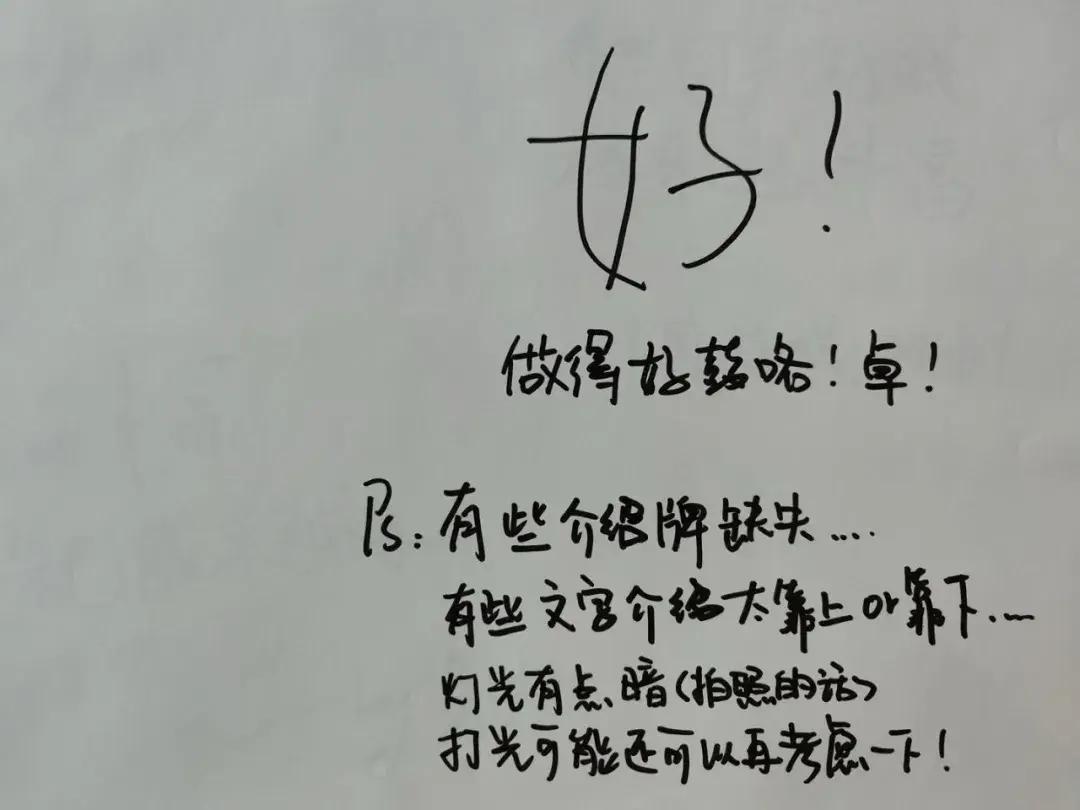 好！
做得好鼓咯！卓！
Ps：有些介绍牌缺失....
有些文字介绍太靠上or靠下....
灯光有点暗（拍照的话）
打光可能还可以再考虑一下！